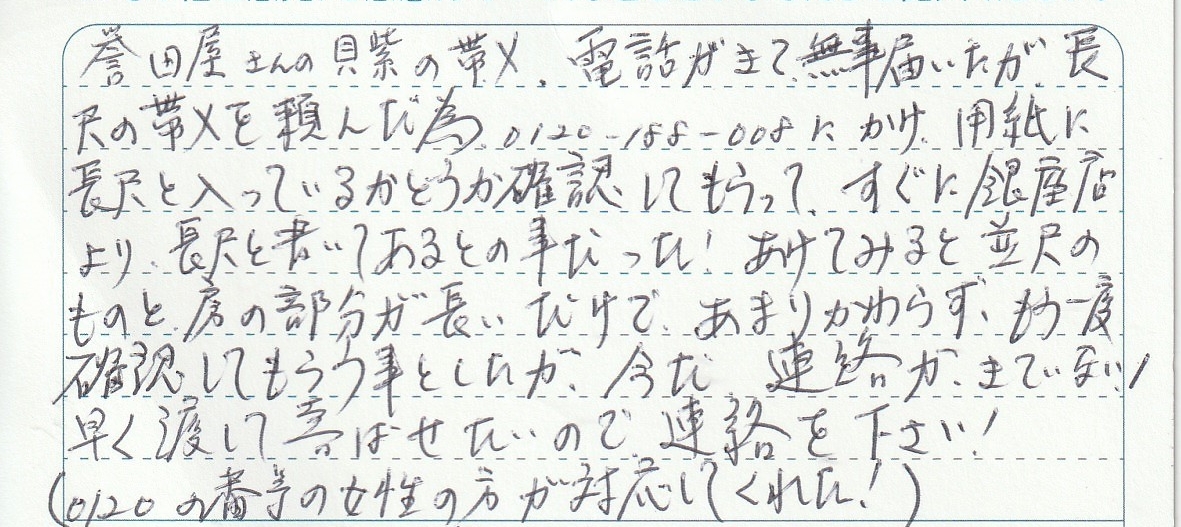 誉田屋さんの貝紫の帯〆、電話がきて、無事届いたが、長
尺の帯〆を頼んだ為、0120-188-008にかけ、用紙に
長尺と入っているかどうか確認してもらって、すぐに銀座店
より、長尺と書いてあるとの事だった！あけてみると並尺の
ものと、房の部分が長いだけで、あまりかわらず、もう一度
確認してもらう事としたが、今だ、連絡が、きていない！
早く渡して喜ばせたいので、連絡を下さい！
(0120の番号の女性の方が対応してくれた！)